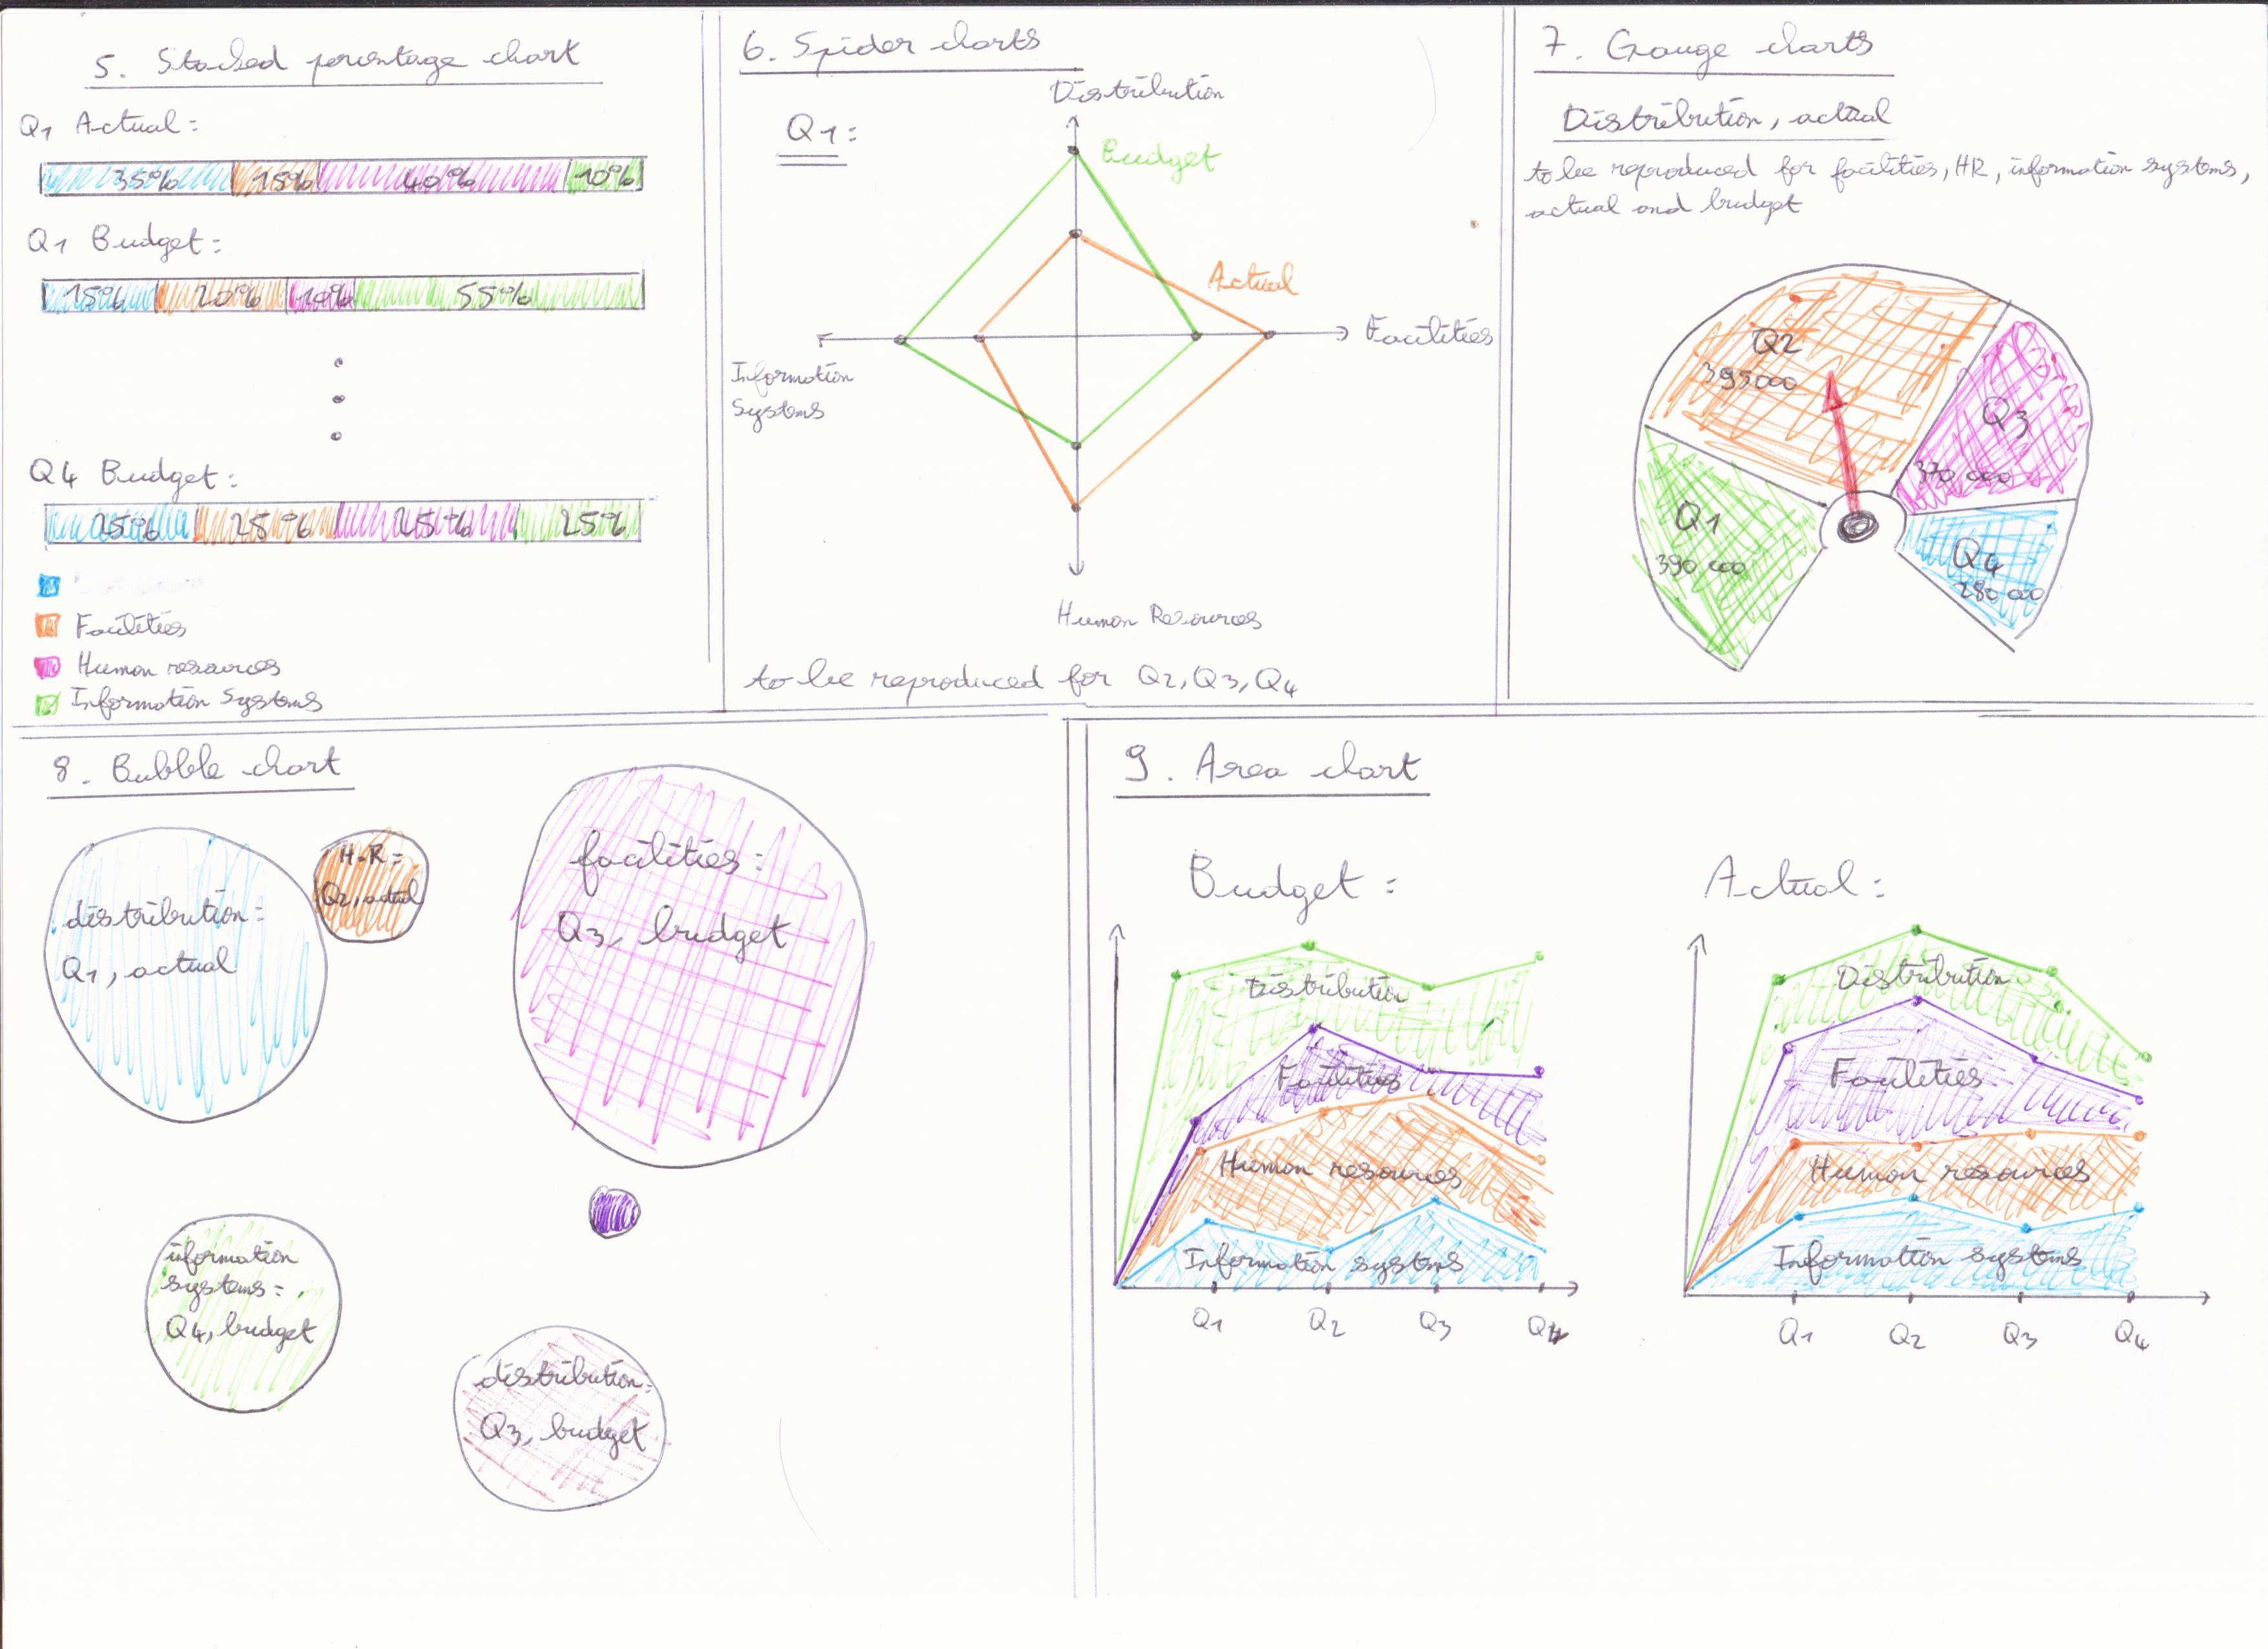 5. Stacked percentage chart
Q1 Actual:
35% 15% 40% 10%
Q1 Budget:
15% 20% 10% 55%
Q4 Budget:
25% 25% 25% 25%
Facilities
Human resources
Information Systems
6. Spider charts
Q1:
Distribution
Budget
Actual
Facilities
Information
Systems
Human Resources
to be reproduced for Q2, Q3, Q4
7. Gauge charts
Distribution, actual
to be reproduced for facilities, HR, information systems,
actual and budget
Q2
395000
Q3
370 000
Q1
390 000
Q4
280 000
8. Bubble chart
distribution:
Q1, actual
H.R:
Q2, actual
facilities:
Q3, budget
information
systems:
Q4, budget
distribution:
Q3, budget
9. Area chart
Budget:
Distribution
Facilities
Human resources
Information systems
Q1 Q2 Q3 Q4
Actual:
Distribution
Facilities
Human resources
Information systems
Q1 Q2 Q3 Q4